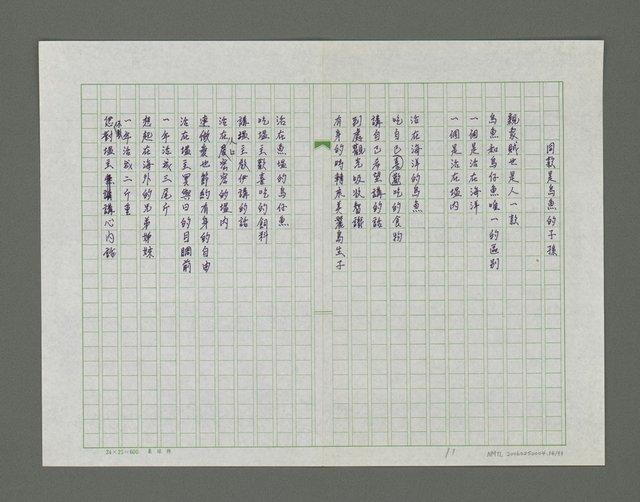 同款是烏魚的子孫
親家賊也是人一款
烏魚和烏仔魚唯一的區別
一個是活在海洋
一個是活在塭內
活在海洋的烏魚
吃自己喜歡吃的食物
講自己希望講的話
到處觀光吸收智識
有身的時轉來美麗島生子
活在魚塭的烏仔魚
吃塭主歡喜吃的飼料
講塭主欲伊講的話
活在人口層密密的塭內
連做愛也節約有身的自由
活在塭主罩無日的目睭前
一年活成三尾斤
想起在海外的兄弟姊妹
一年活成二斤重
怹對塭主講心內話
24×25=600
11
NMTL 20060250004.14/11